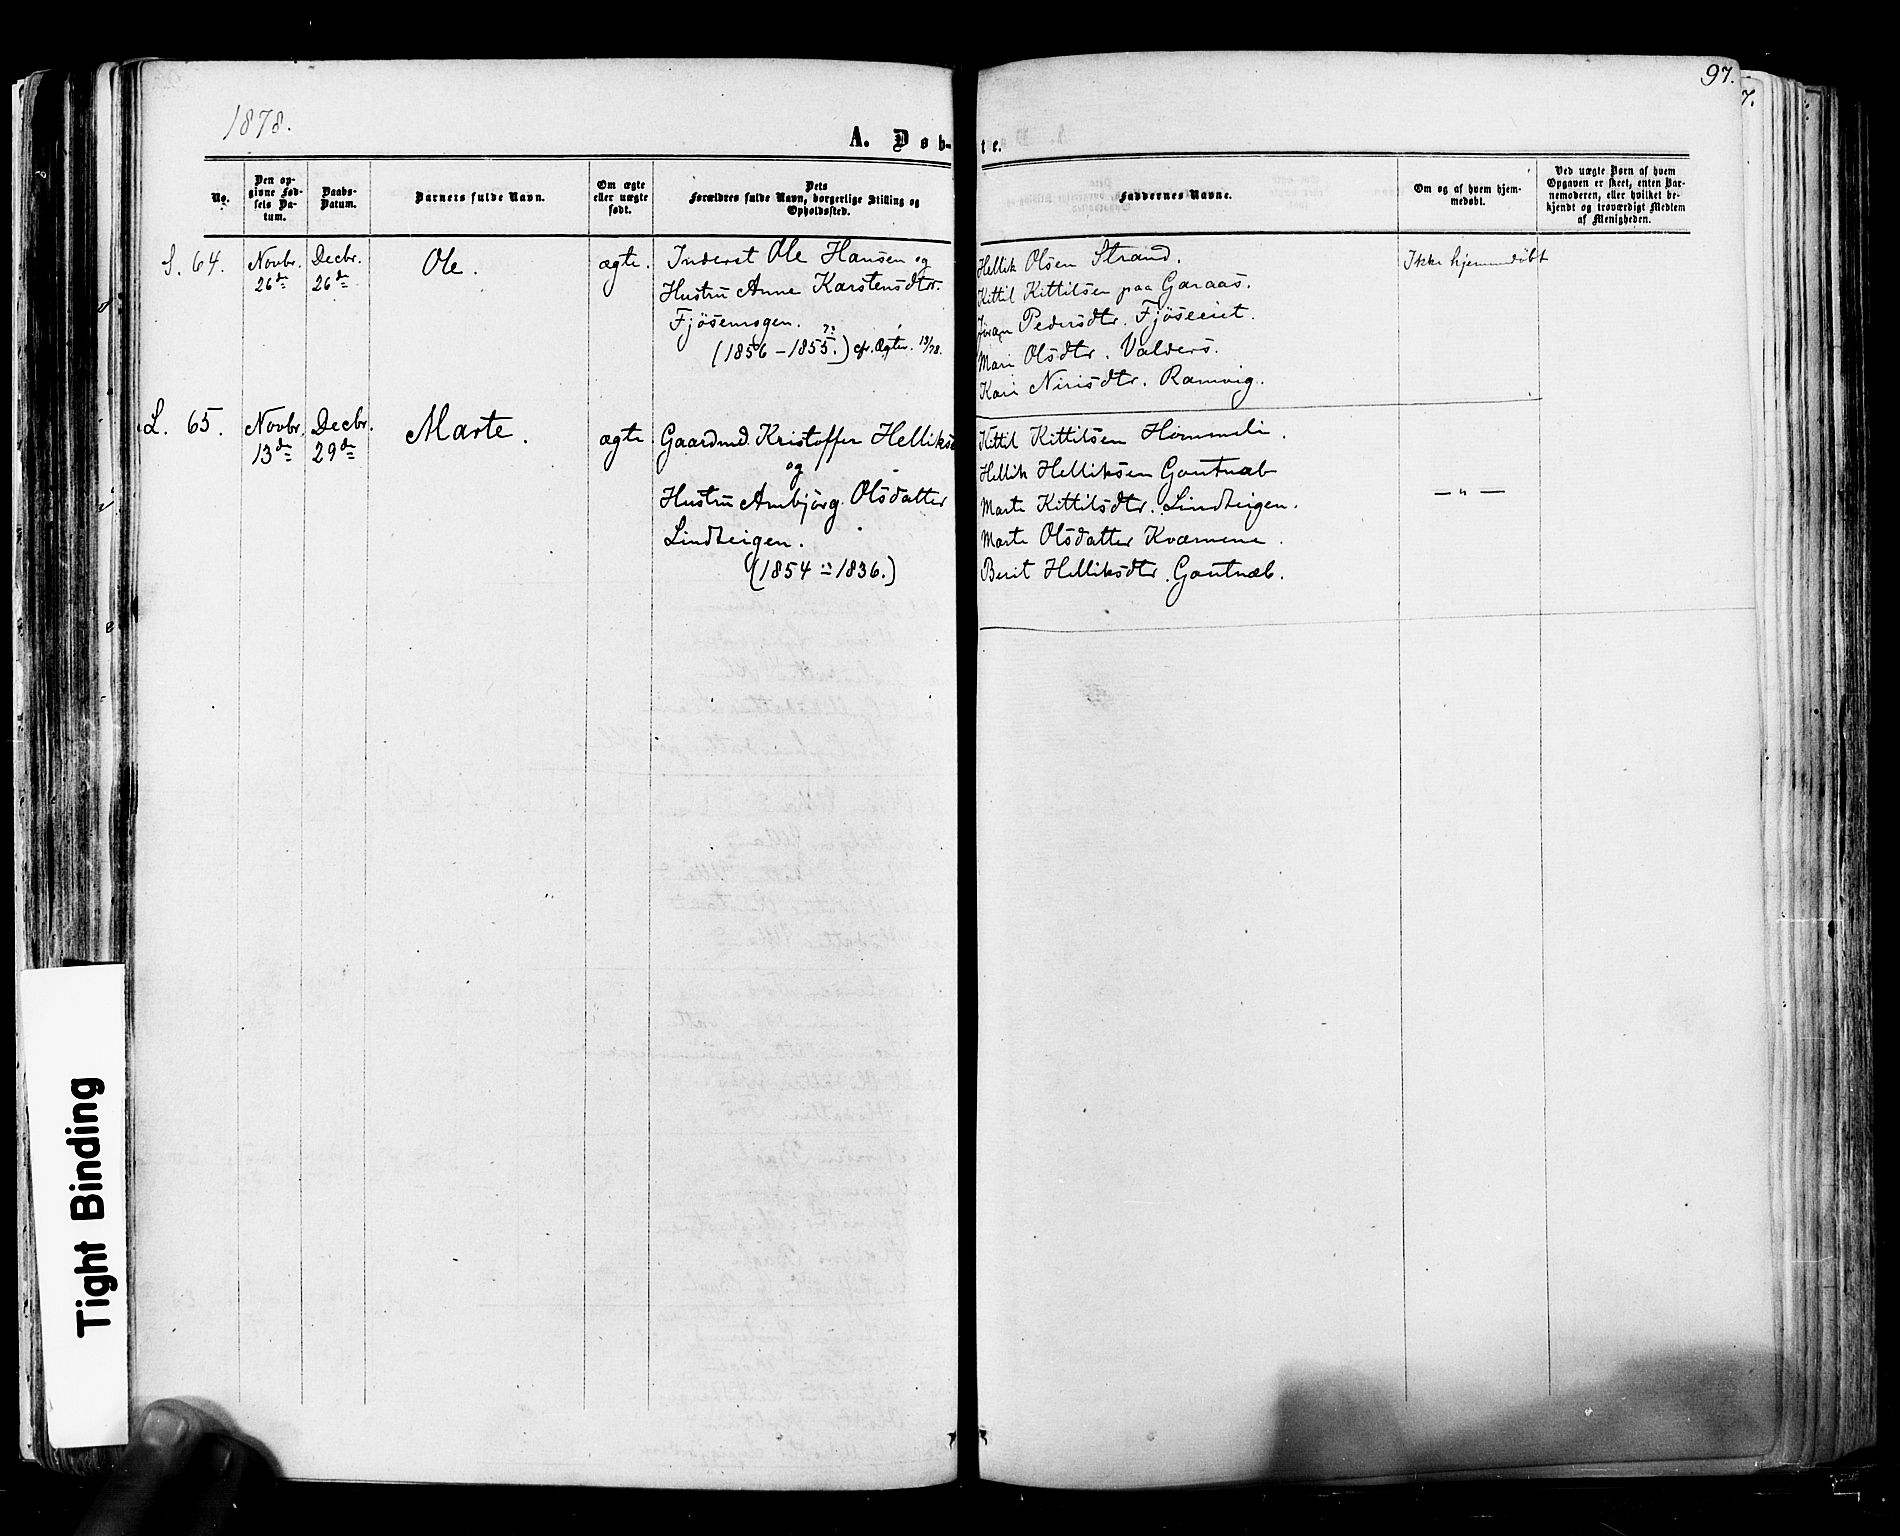 1878.
97.
7.
A. Døb-
te.
No.
Den op-
givne Fød-
sels Da-
tum.
Daabs-
Datum.
Barnets fulde Navn.
Om ægte
eller uægte
født.
Dets
Forældres fulde Navn, borgerlige Stilling og
Opholdssted.
Faddernes Navne.
Om og af hvem hjem-
medøbt.
Ved uægte Børn af hvem
Opgaven er skeet, enten Bar-
nemoderen, eller hvilket be-
kjendt og troværdigt Medlem
af Menigheden.
S. 64.
Novbr.
26de
Decbr.
26de
Ole.
ægte.
Inderst Ole Hansen og
Hustru Anne Karstensdtr.
Fjösemogen.
(1856 - 1855.) cfr. Ægtev. 13/78.
Hellik Olsen Strand.
Kittil Kittilsen paa Garaas.
Jöran Pedersdtr. Fjöseeiet.
Mari Olsdtr. Valders.
Kari Nirisdtr. Ramvig.
Ikke hjemmedøbt
L. 65.
Novbr.
13de
Decbr.
29de
Marte.
ægte.
Gaardmd. Kristoffer Helliks
og
Hustru Ambjörg Olsdatter
Lindteigen.
(1854 - 1836.)
Kittil Kittilsen Hommeli.
Hellik Helliksen Gontnæb
Marte Kittilsdtr. Lindteigen.
Marte Olsdatter Kværnene.
Berit Helliksdtr. Gontnæb.
— " —
Tight Binding